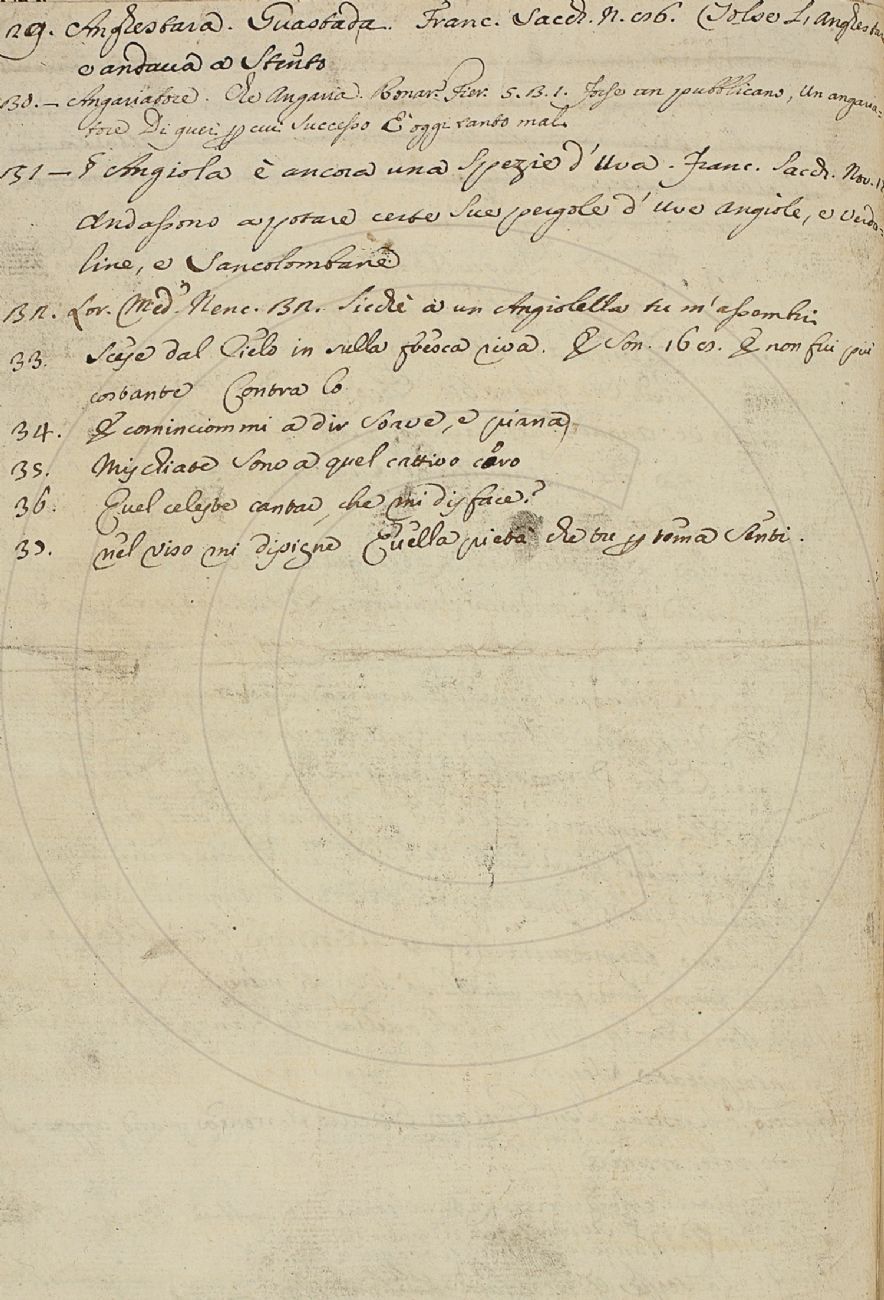 29. Anghestara. Guastada. Franc. Sacch. N. 156. Tolse L'anghestar
e andava a Stento
130. – Angariatore. Che Angaria. Bonar. Fier. 5. 3. 1. Forse un pubblicano, Un angaria-
tore Di quei per cui successo È oggi tanto mal.
131 – § Angiola è ancora una Spezie d'Uva. Franc. Sacch. Nov. 1
Andassono a potare certe sue pergole d'Uve angiole, e verdo-
line, e Sancolombane
132. Lor. Med. Nenc. 132. Sicchè a un Angiolella tu m'assembri
33. Scese dal Cielo in sulla fresca riva. E Son. 16 E non fui più
costante Contra lo
34. E cominciommi a dir soave, e piana,
35. Mischiate sono a quel cattivo coro
36. Quel celeste cantar, che mi disface?
37. nel viso mi dipigne Quella pietà che tu per tema Senti.